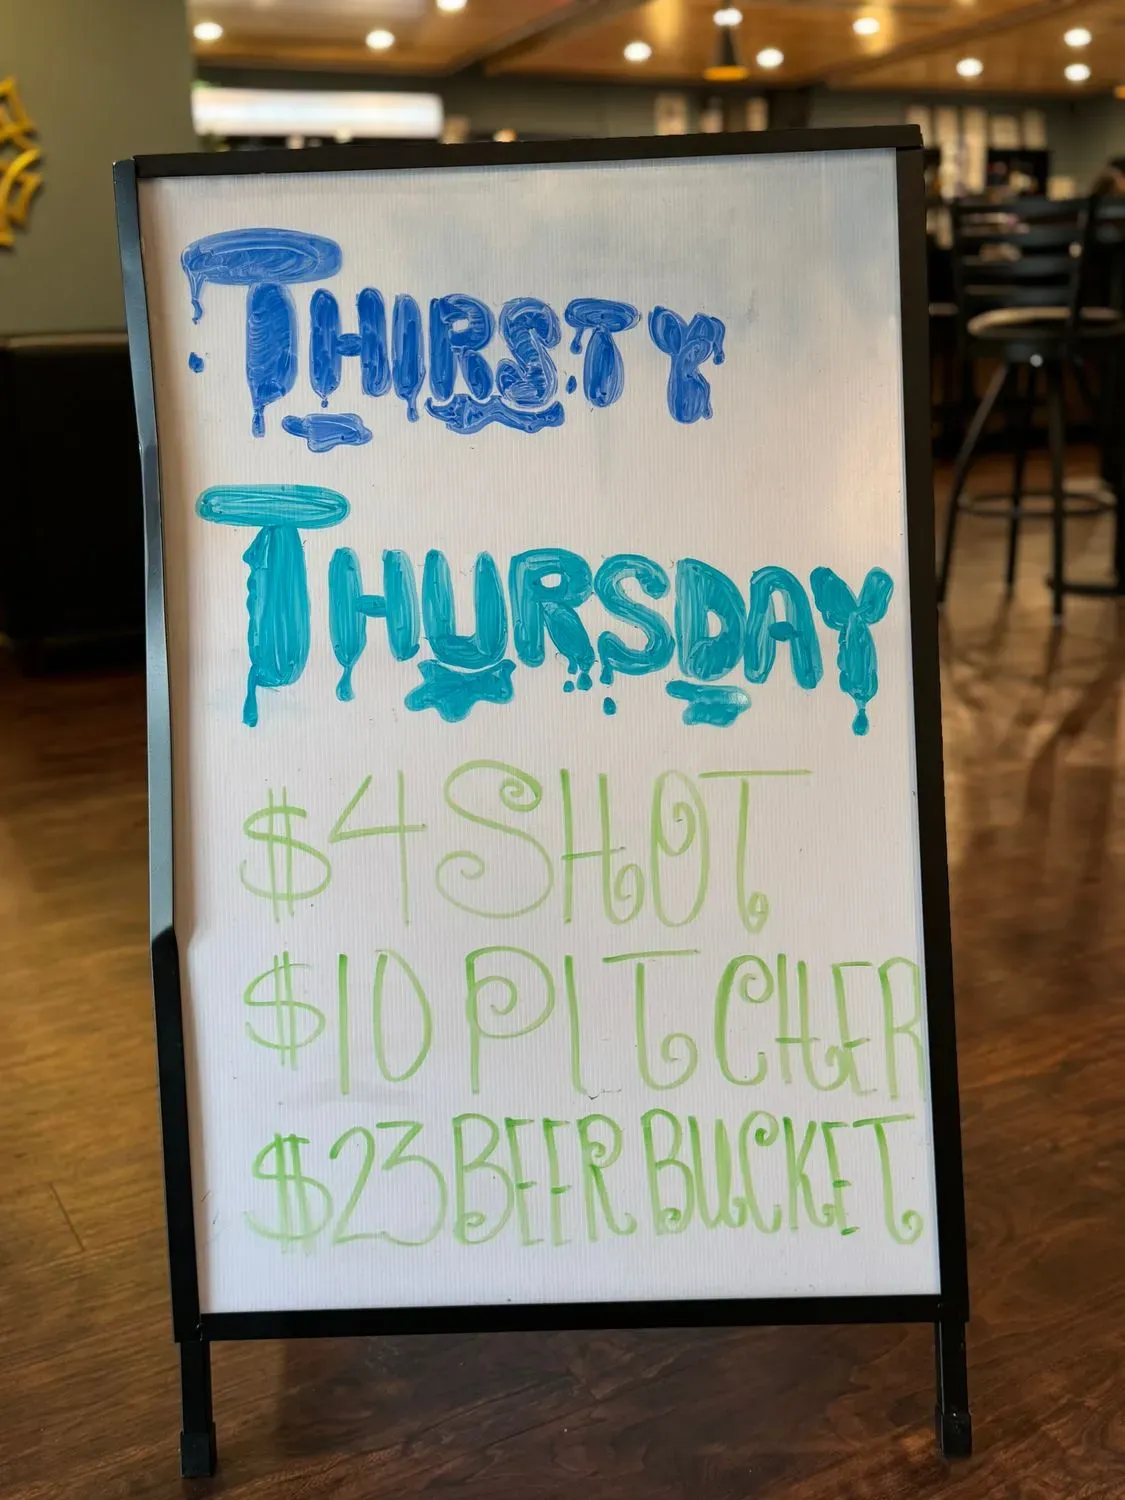 THIRSTY
THURSDAY
$4 SHOT
$10 PITCHER
$23 BEER BUCKET